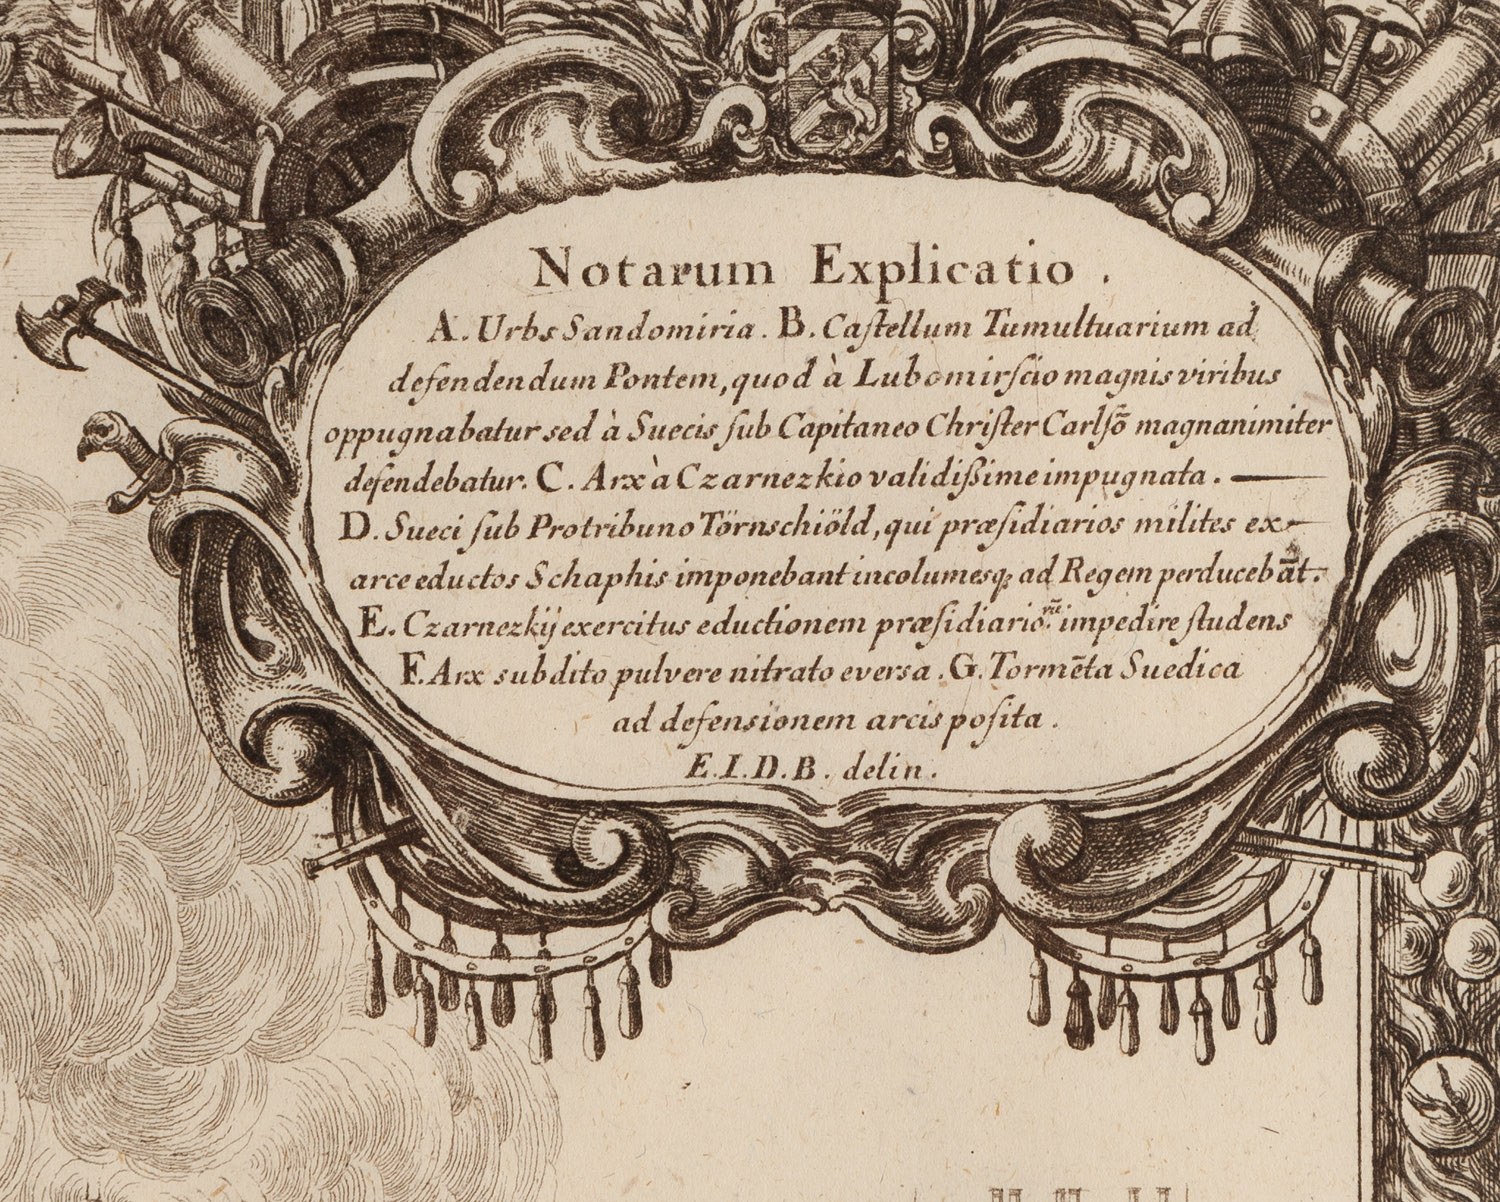 Notarum Explicatio.
A. Urbs Sandomiria. B. Caſtellum Tumultuarium ad
defendendum Pontem, quod à Lubomirſcio magnis viribus
oppugnabatur sed à Suecis ſub Capitaneo Chriſter Carlſõ magnanimiter
defendebatur. C. Arx à Czarnezkio validiſſime impugnata. —
D. Sueci ſub Protribuno Törnschiöld, qui præſidiarios milites ex-
arce eductos Schaphis imponebant incolumesq; ad Regem perducebāt.
E. Czarnezkij exercitus eductionem præſidiariorũ impedire ſtudens
F. Arx subdito pulvere nitrato eversa. G. Tormēta Suedica
ad defensionem arcis poſita.
E.I.D.B. delin.